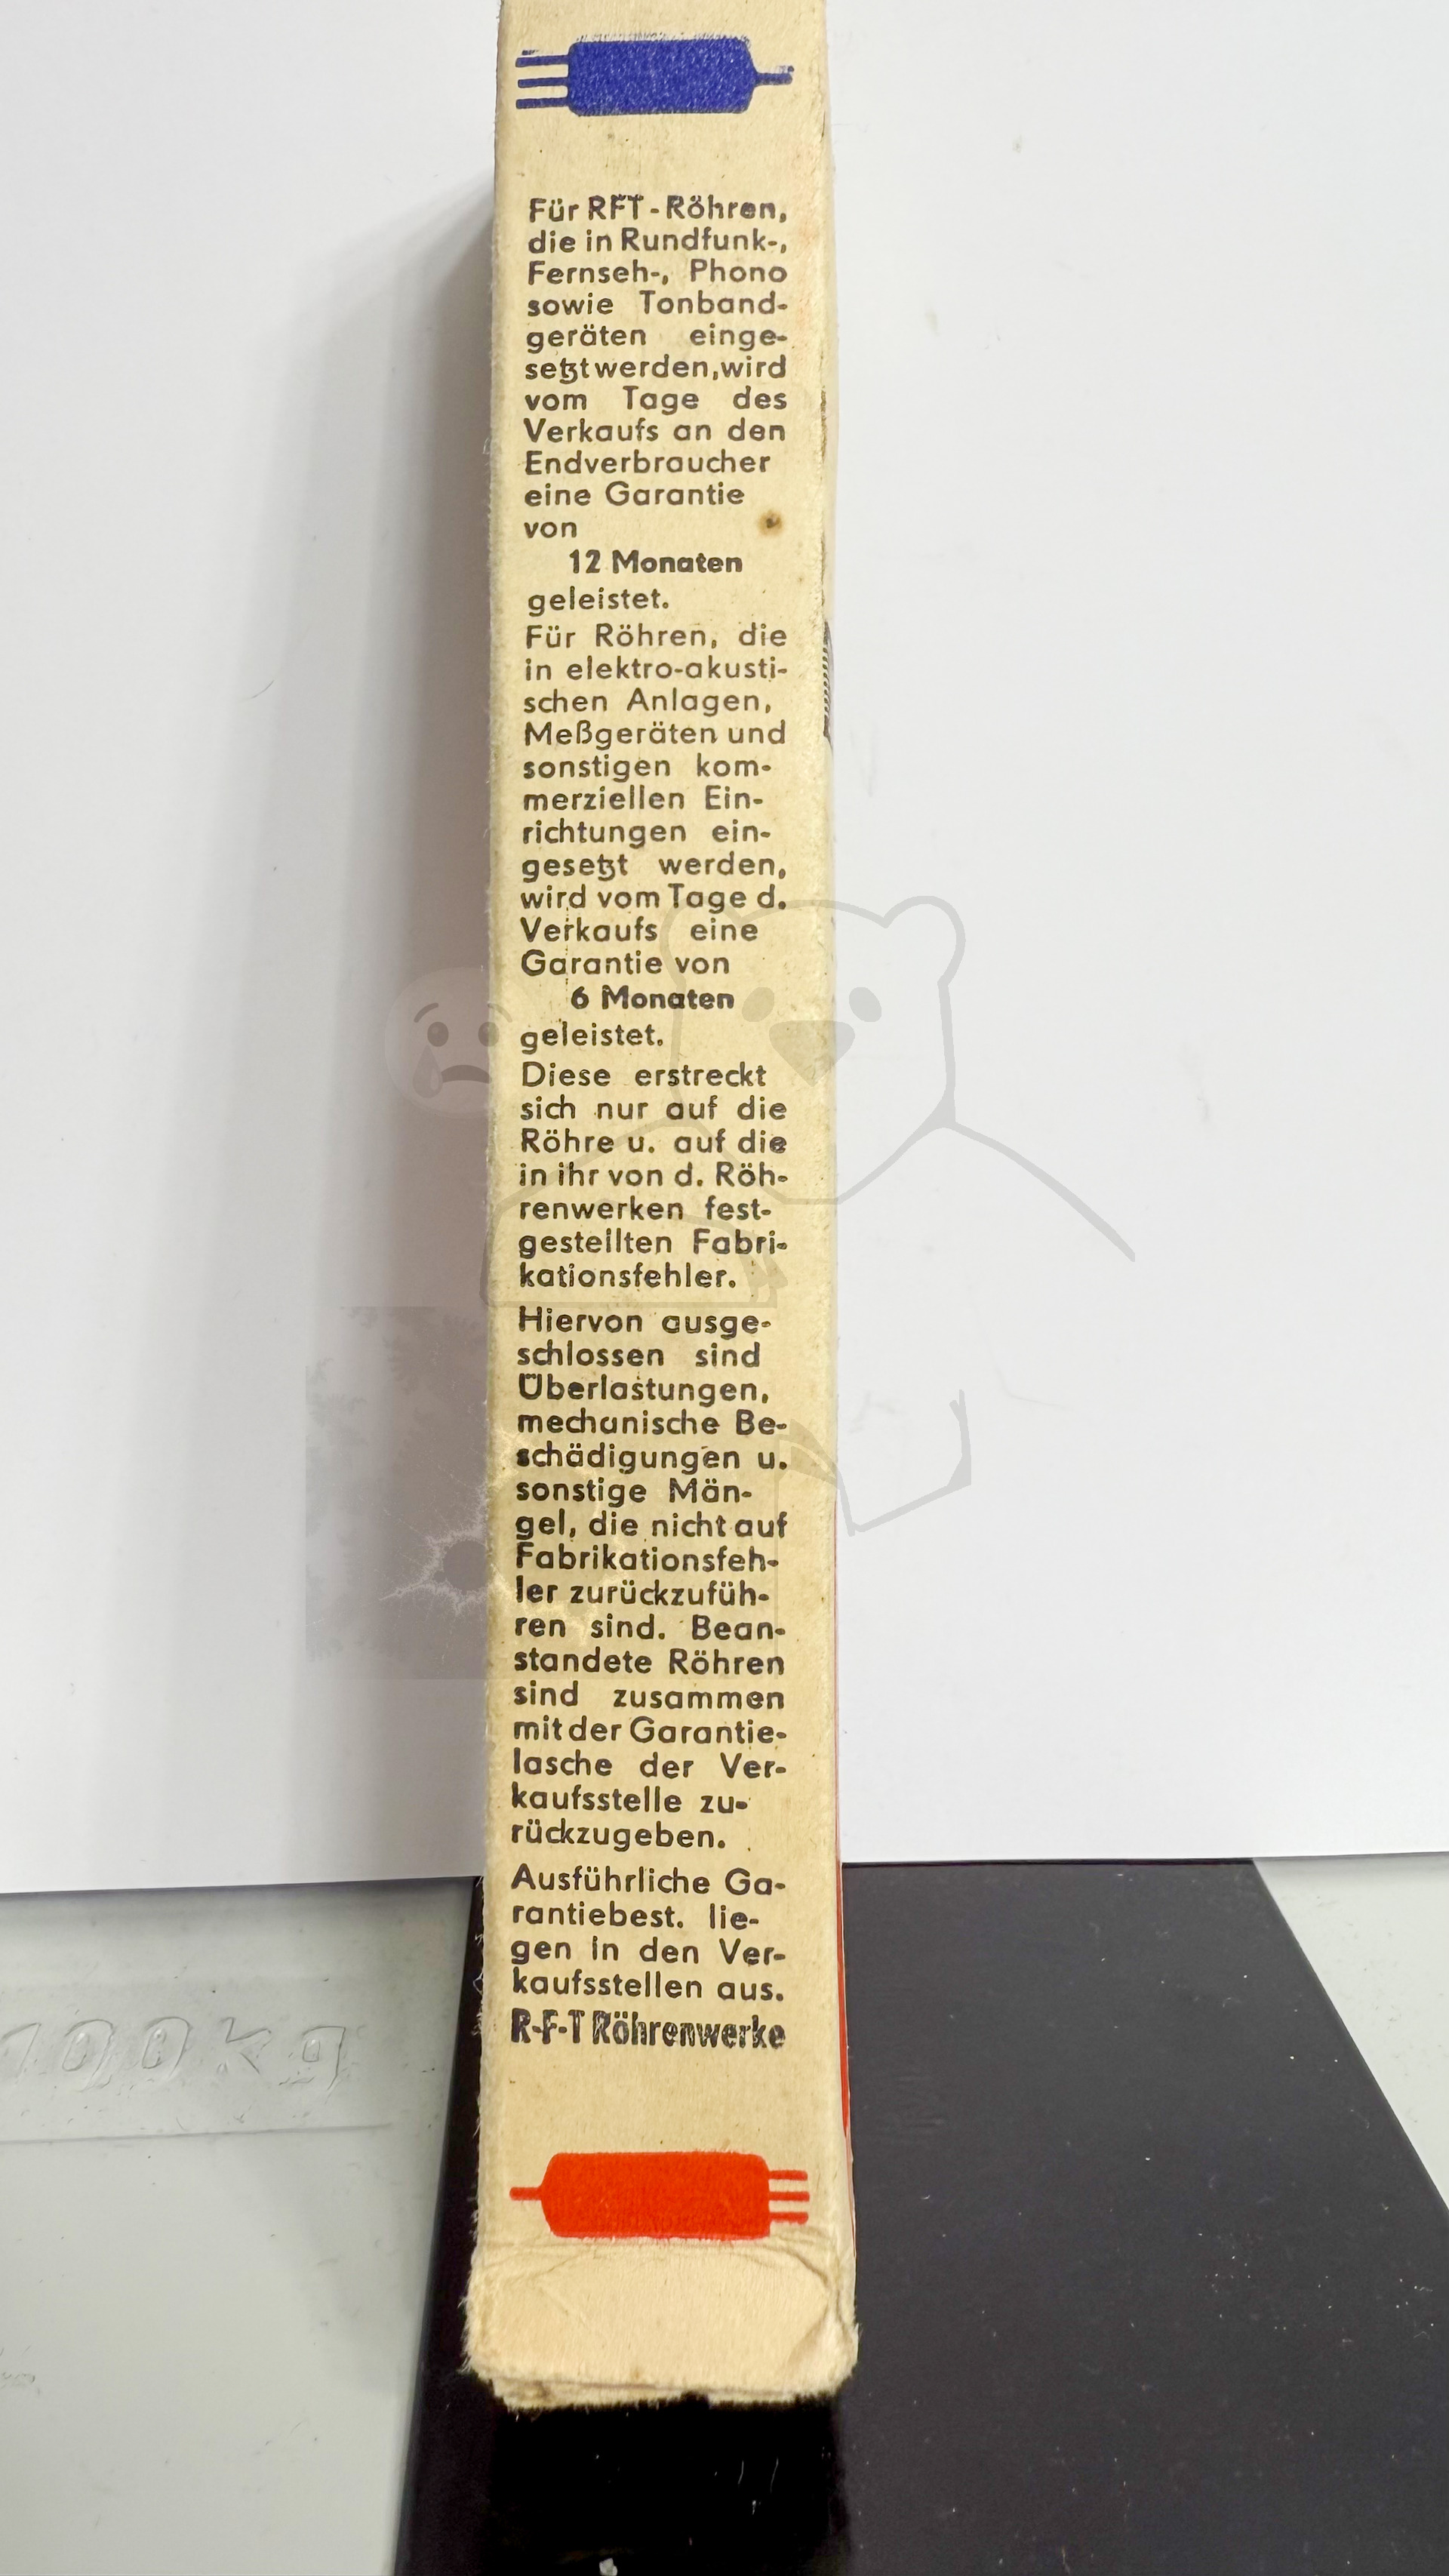 Für RFT-Röhren,
die in Rundfunk-,
Fernseh-, Phono
sowie Tonband-
geräten einge-
setzt werden, wird
vom Tage des
Verkaufs an den
Endverbraucher
eine Garantie
von
12 Monaten
geleistet.
Für Röhren, die
in elektro-akusti-
schen Anlagen,
Meßgeräten und
sonstigen kom-
merziellen Ein-
richtungen ein-
gesetzt werden,
wird vom Tage d.
Verkaufs eine
Garantie von
6 Monaten
geleistet.
Diese erstreckt
sich nur auf die
Röhre u. auf die
in ihr von d. Röh-
renwerken fest-
gestellten Fabri-
kationsfehler.
Hiervon ausge-
schlossen sind
Überlastungen,
mechanische Be-
schädigungen u.
sonstige Män-
gel, die nicht auf
Fabrikationsfeh-
ler zurückzufüh-
ren sind. Bean-
standete Röhren
sind zusammen
mit der Garantie-
lasche der Ver-
kaufsstelle zu-
rückzugeben.
Ausführliche Ga-
rantiebest. lie-
gen in den Ver-
kaufsstellen aus.
R-F-T Röhrenwerke
100kg